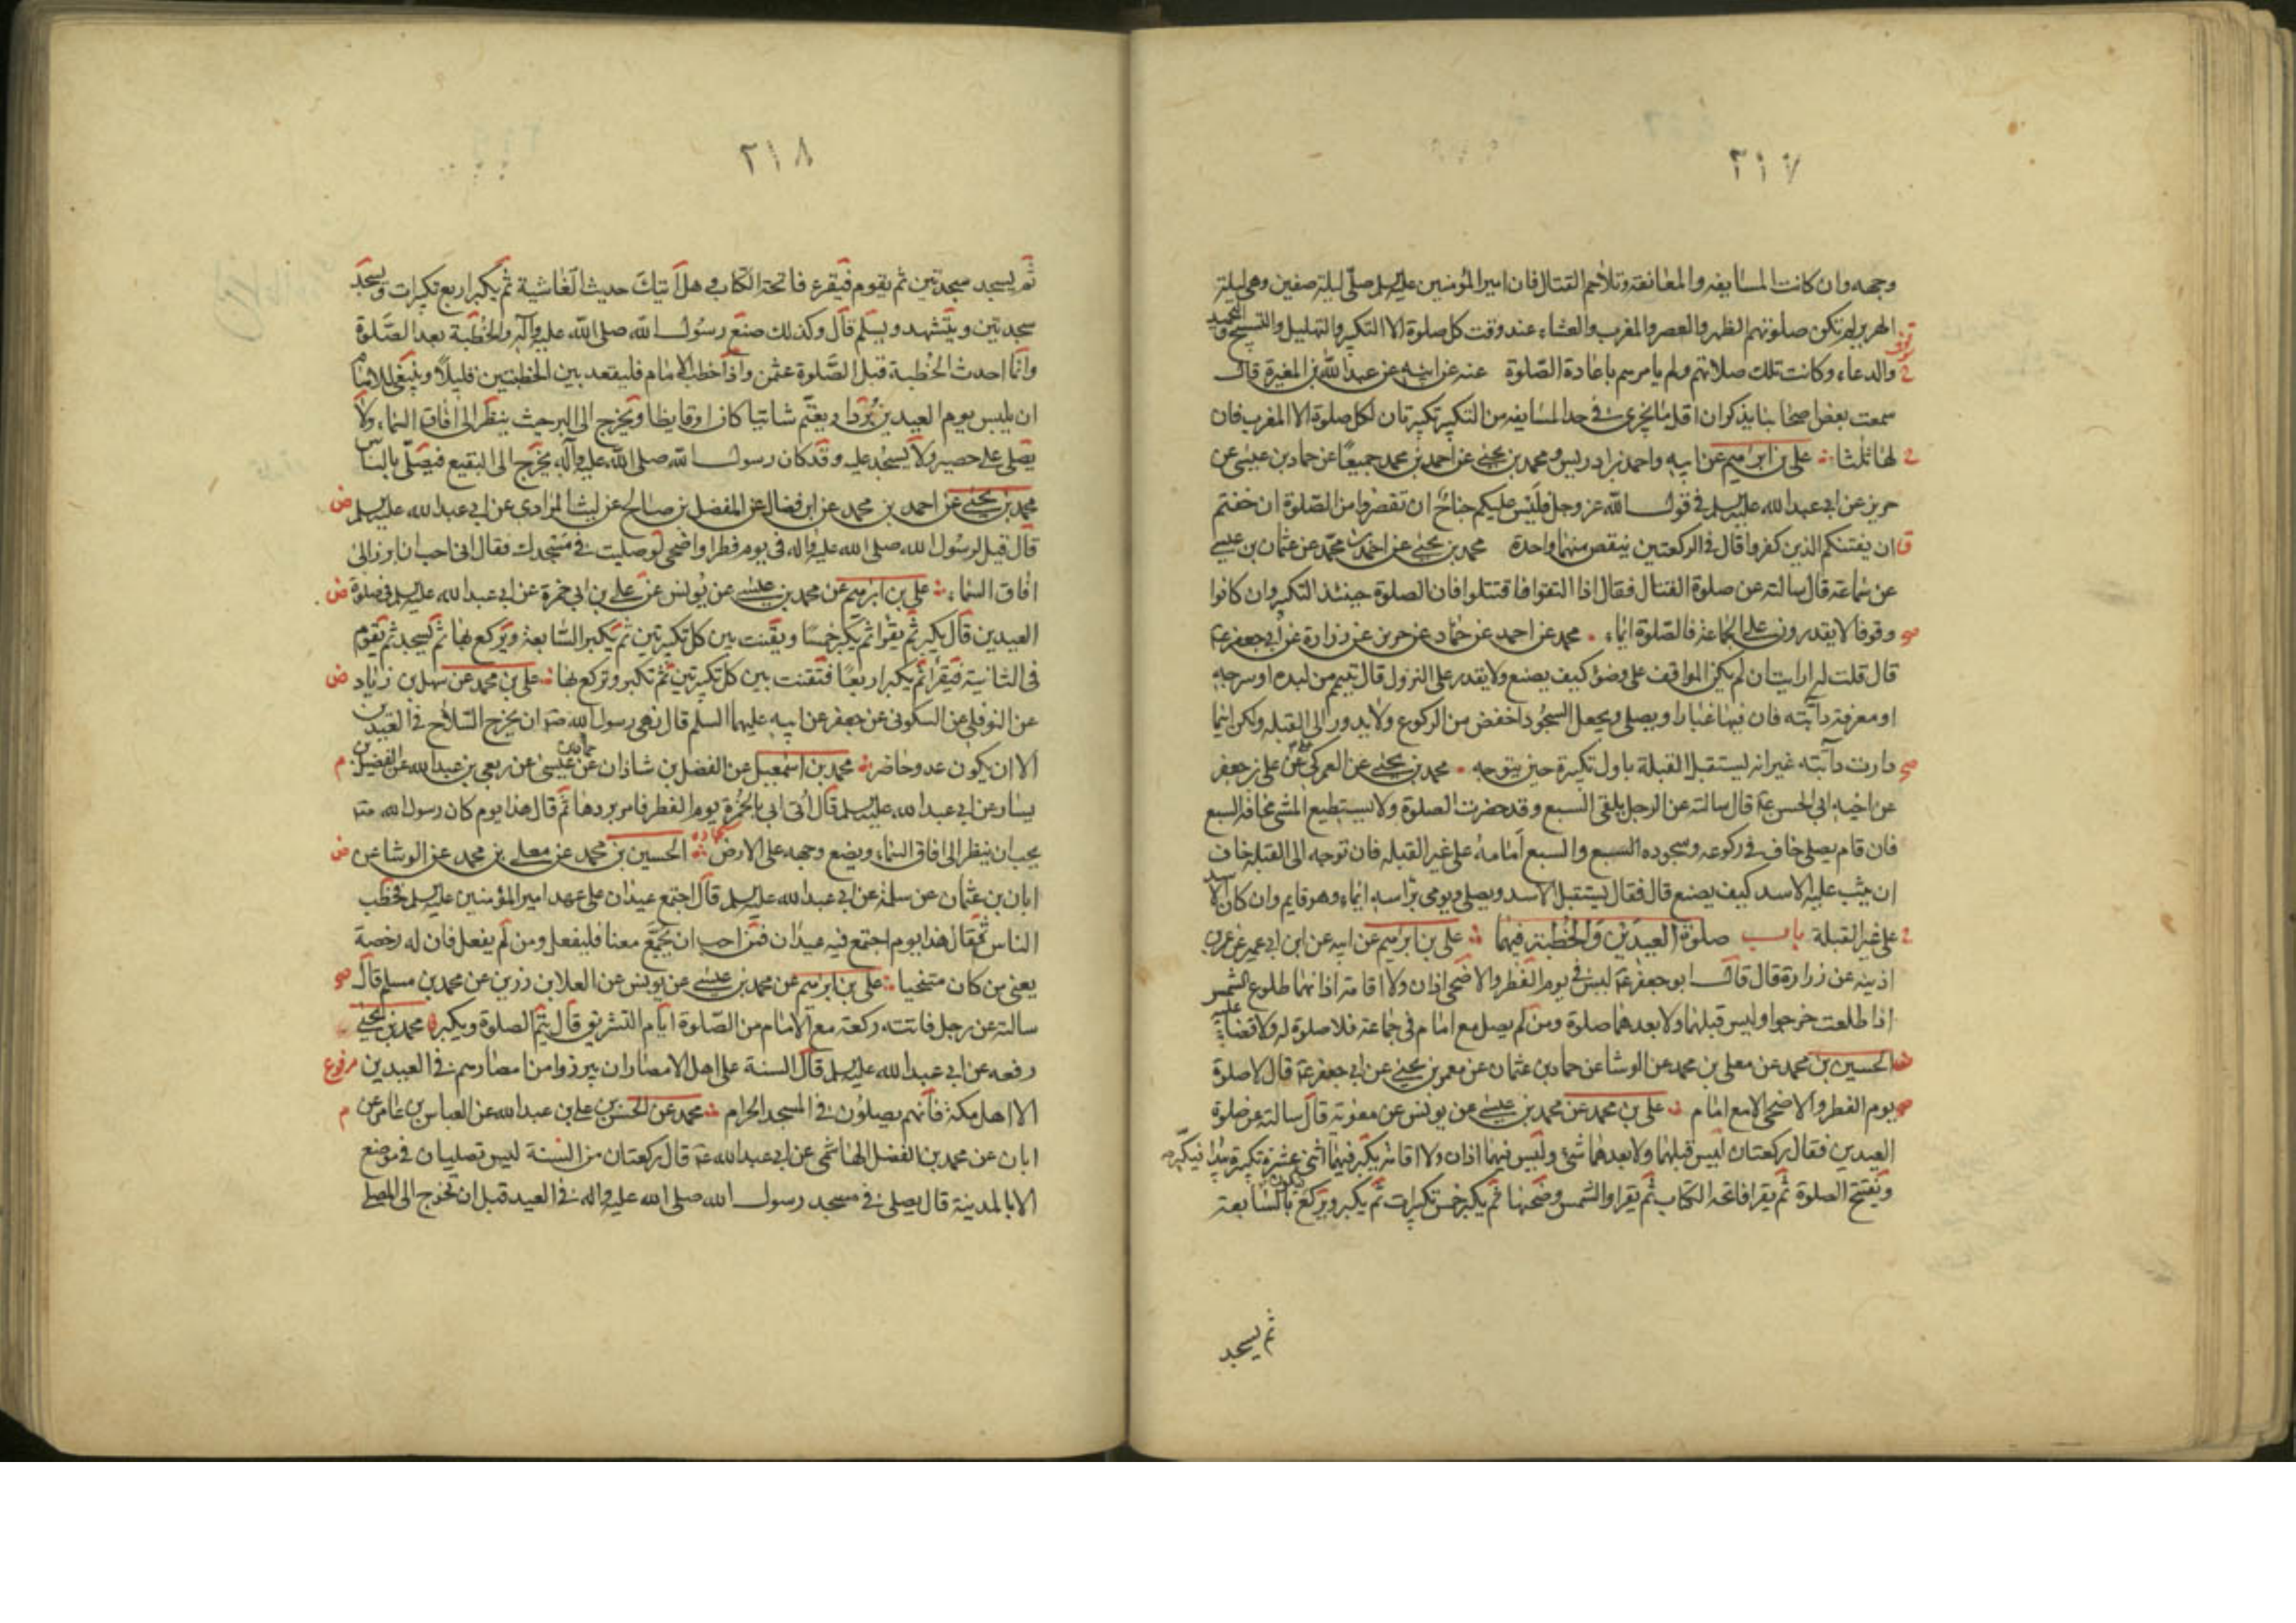 ٢١٧
وجهه وان كانت المسايفه والمعانقة وتلاحم القتال فان امير المؤمنين عليه السلم صلى ليلة صفين وهى ليلة
الهرير لم تكن صلوتهم الظهر والعصر والمغرب والعشاء عند وقت كل صلوة الا التكبير والتهليل والتسبيح والتحميد
والدعاء وكانت تلك صلاتهم ولم يامرهم باعادة الصلوة عنه عن ابيه عن عبد الله بن المغيرة قال
سمعت بعض اصحابنا يذكر ان اقل ما يجزى فى حد المسايفه من التكبير تكبيرتان لكل صلوة الا المغرب فان
لها ثلثا علي بن ابرهيم عن ابيه واحمد بن ادريس ومحمد بن يحيى عن احمد بن محمد جميعا عن حماد بن عيسى عن
حريز عن ابى عبد الله عليه السلم فى قول الله عز وجل فليس عليكم جناح ان تقصروا من الصلوة ان خفتم
ان يفتنكم الذين كفروا قال فى الركعتين ينقص منهما واحدة محمد بن يحيى عن احمد بن محمد عن عثمان بن عيسى
عن سماعة قال سالته عن صلوة القتال فقال اذا التقوا فاقتتلوا فان الصلوة حينئذ التكبير وان كانوا
وقوفا لا يقدرون على الجماعة فالصلوة ايماء محمد عن احمد عن حماد عن حريز عن زرارة عن ابى جعفر ع
قال قلت له ارايت ان لم يكن المواقف على وضوء كيف يصنع ولا يقدر على النزول قال تيمم من لبده او سرجه
او معرفة دابته فان فيها غبارا ويصلى ويجعل السجود اخفض من الركوع ولا يدور الى القبله ولكن اينما
دارت دابته غير انه يستقبل القبلة باول تكبيرة حين يتوجه محمد بن يحيى عن العمركى عن على بن جعفر
عن اخيه ابى الحسن ع قال سالته عن الرجل يلقى السبع وقد حضرت الصلوة ولا يستطيع المشى مخافة السبع
فان قام يصلى خاف فى ركوعه وسجوده السبع والسبع امامه على غير القبله فان توجه الى القبله خاف
ان يثب عليه الاسد كيف يصنع قال فقال يستقبل الاسد ويصلى ويومى براسه ايماء وهو قايم وان كان الاسد
على غير القبلة باب صلوة العيدين والخطبة فيهما علي بن ابرهيم عن ابيه عن ابن ابى عمير عن عمر بن
اذينه عن زرارة قال قال ابو جعفر ع ليس فى يوم الفطر والاضحى اذان ولا اقامة اذانهما طلوع الشمس
اذا طلعت خرجوا وليس قبلهما ولا بعدهما صلوة ومن لم يصل مع امام فى جماعة فلا صلوة له ولا قضاء عليه
الحسين بن محمد عن معلى بن محمد عن الوشا عن حماد بن عثمان عن معمر بن يحيى عن ابى جعفر ع قال لا صلوة
يوم الفطر والاضحى الا مع امام علي بن محمد عن محمد بن عيسى عن يونس عن معوية قال سالته عن صلوة
العيدين فقال ركعتان ليس قبلهما ولا بعدهما شئ وليس فيهما اذان ولا اقامة يكبر فيهما اثنى عشرة تكبيرة يبدا فيكبر
ويفتتح الصلوة ثم يقرا فاتحة الكتاب ثم يقرا والشمس وضحيها ثم يكبر خمس تكبيرات ثم يكبر ويركع بالسابعة
ثم يسجد
٢١٨
ثم يسجد سجدتين ثم يقوم فيقرء فاتحة الكتاب وهل اتيك حديث الغاشية ثم يكبر اربع تكبيرات ويسجد
سجدتين ويتشهد ويسلم قال وكذلك صنع رسول الله صلى الله عليه وآله والخطبة بعد الصلوة
وانما احدث الخطبة قبل الصلوة عثمن واذا خطب الامام فليقعد بين الخطبتين قليلا وينبغى للامام
ان يلبس يوم العيدين بردا ويعتم شاتيا كان او قايظا ويخرج الى البر حيث ينظر الى افاق السماء ولا
يصلى على حصير ولا يسجد عليه وقد كان رسول الله صلى الله عليه وآله يخرج الى البقيع فيصلى بالناس
محمد بن يحيى عن احمد بن محمد عن ابن فضال عن المفضل بن صالح عن ليث المرادى عن ابى عبد الله عليه السلم ض
قال قيل لرسول الله صلى الله عليه واله فى يوم فطر او اضحى لو صليت فى مسجدك فقال انى احب ان ابرز الى
افاق السماء علي بن ابرهيم عن محمد بن عيسى عن يونس عن على بن ابى حمزة عن ابى عبد الله عليه السلم فى صلوة ض
العيدين قال يكبر ثم يقرا ثم يكبر خمسا ويقنت بين كل تكبيرتين ثم يكبر السابعة ويركع بها ثم يسجد ثم يقوم
فى الثانية فيقرا ثم يكبر اربعا فتقنت بين كل تكبيرتين ثم تكبر وتركع بها علي بن محمد عن سهل بن زياد ض
عن النوفلى عن السكونى عن جعفر عن ابيه عليهما السلم قال نهى رسول الله ص ان يخرج السلاح فى العيدين
الا ان يكون عدو حاضر محمد بن اسمعيل عن الفضل بن شاذان عن حماد بن عيسى عن ربعى بن عبد الله عن الفضيل بن م
يسار عن ابى عبد الله عليه السلم قال اتى ابى بالخمرة يوم الفطر فامر بردها ثم قال هذا يوم كان رسول الله ص
يحب ان ينظر الى افاق السماء ويضع وجهه على الارض الحسين بن محمد عن معلى بن محمد عن الوشا عن ض
ابان بن عثمان عن سلمة عن ابى عبد الله عليه السلم قال اجتمع عيدان على عهد امير المؤمنين عليه السلم فخطب
الناس ثم قال هذا يوم اجتمع فيه عيدان فمن احب ان يجمع معنا فليفعل ومن لم يفعل فان له رخصة
يعنى من كان متنحيا علي بن ابرهيم عن محمد بن عيسى عن يونس عن العلا بن رزين عن محمد بن مسلم قال صح
سالته عن رجل فاتته ركعة مع الامام من الصلوة ايام التشريق قال يتم الصلوة ويكبر محمد بن يحيى
رفعه عن ابى عبد الله عليه السلم قال السنة على اهل الامصار ان يبرزوا من امصارهم فى العيدين مرفوع
الا اهل مكة فانهم يصلون فى المسجد الحرام محمد عن الحسن بن على بن عبد الله عن العباس بن عامر عن م
ابان عن محمد بن الفضل الهاشمى عن ابى عبد الله ع قال ركعتان من السنة ليس تصليان فى موضع
الا بالمدينة قال يصلى فى مسجد رسول الله صلى الله عليه واله فى العيد قبل ان تخرج الى المصلى